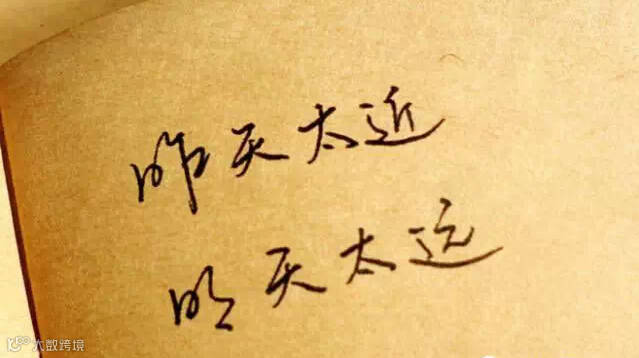 昨天太近
明天太远
大数跨境